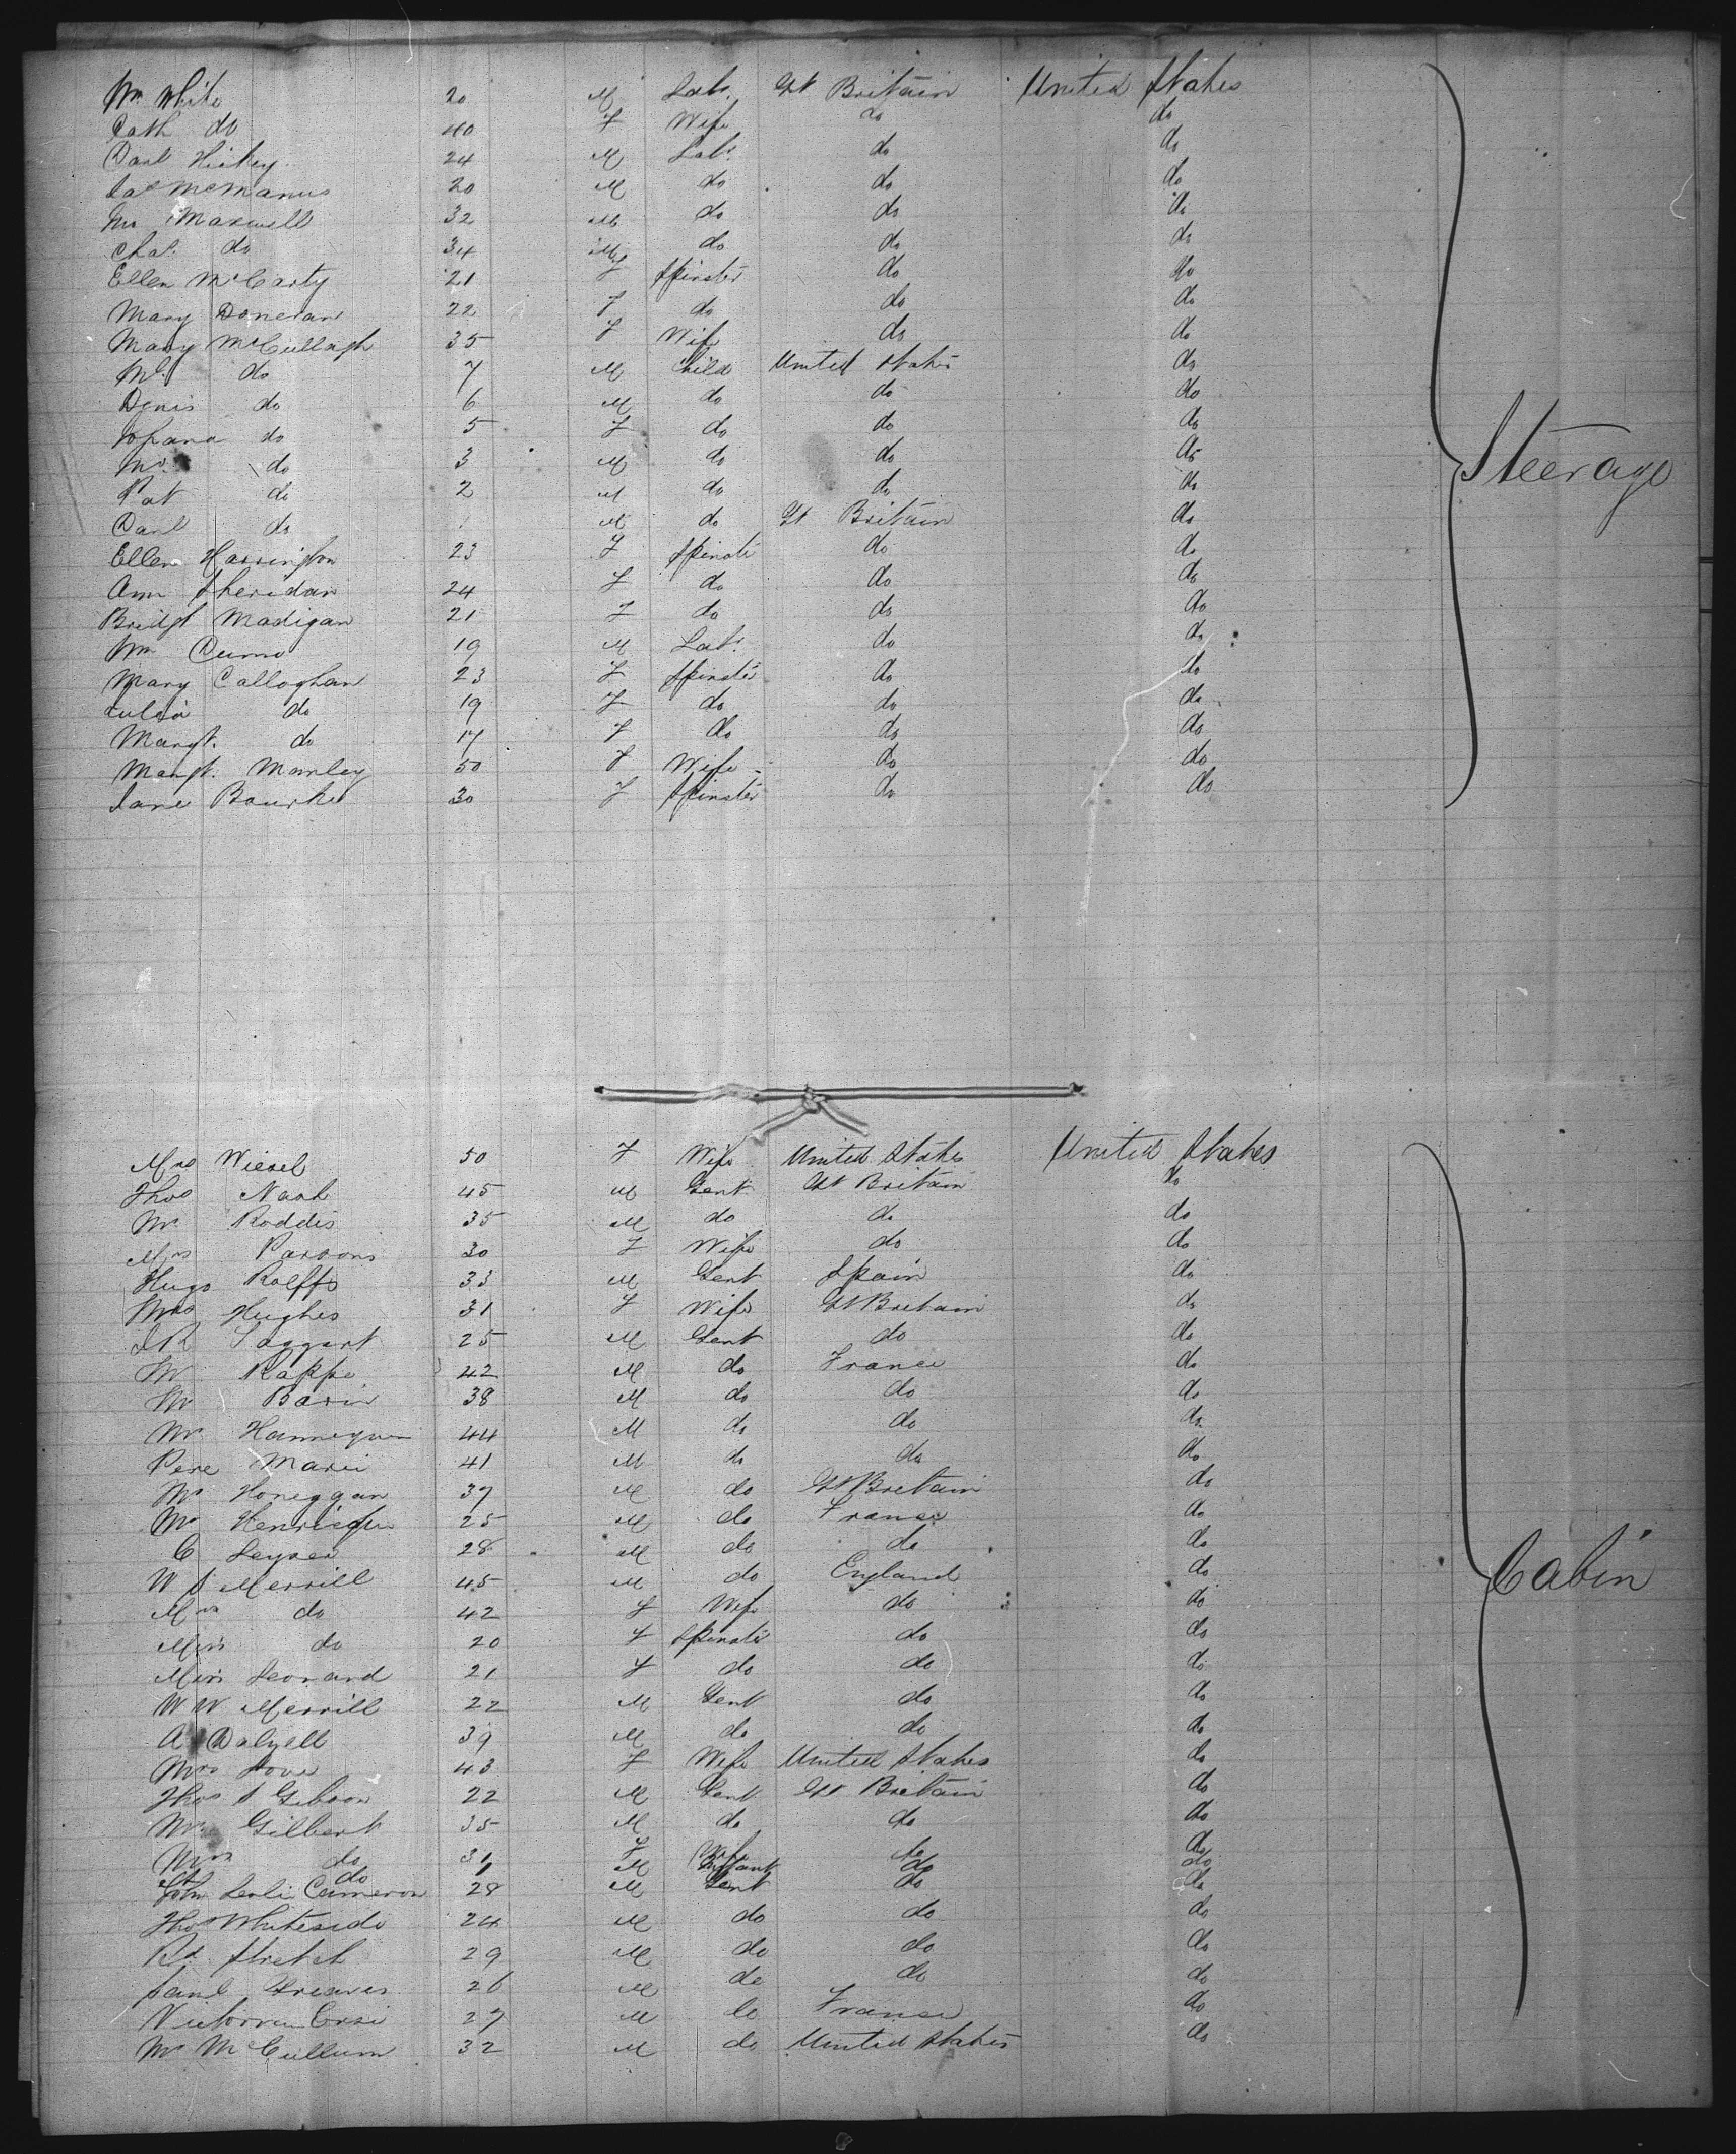 Wm White 20 M Labr. Gt Britain United States
Cath do 40 F Wife do do
Danl Hickey 24 M Labr. do do
Jas McManus 20 M do do do
Maxwell 32 M do do do
Chas. do 34 M do do do
Ellen McCarty 21 F Spinster do do
Mary Donevan 22 F do do do
Mary McCullagh 35 F Wife do do
Ml. do 7 M Child United States do
Denis do 6 M do do do
Johana do 5 F do do do
do 3 M do do do
Pat do 2 M do do do
Danl do 1 M do Gt Britain do
Ellen Harrington 23 F Spinstr do do
Ann Sheridan 24 F do do do
Bridgt Madigan 21 F do do do
Wm 19 M Labr. do do
Mary Calloghan 23 F Spinster do do
Julia do 19 F do do do
Margt. do 17 F do do do
Margt. Manley 50 F Wife do do
Jane Bourke 30 F Spinster do do
Steerage
Mrs Wiesel 50 F Wife United States United States
Thos Nash 45 M Gent Gt Britain do
Mr Roddis 35 M do do do
Mrs Parsons 30 F Wife do do
Hugo Rolffs 33 M Gent Spain do
Mrs Hughes 31 F Wife Gt Britain do
J R Taggart 25 M Gent do do
Mr Rappe 42 M do France do
Mr Barin 38 M do do do
Mr Hannequin 44 M do do do
Pere Marie 41 M do do do
Mr Honeggan 37 M do Gt Britain do
Mr 25 M do France do
C Leyser 28 M do do do
W S Merrill 45 M do England do
Mrs do 42 F Wife do do
Miss do 20 F Spinster do do
Miss Leonard 21 F do do do
W W Merrill 22 M Gent do do
A Dalzell 39 M do do do
Mrs Love 43 F Wife United States do
Thos S Gibson 22 M Gent Gt Britain do
Mr Gilbert 35 M do do do
Mrs do 31 F Wife do do
do 1 M Infant do do
John Leslie Cameron 28 M Gent do do
Thos Whiteside 24 M do do do
Rd Stretch 29 M do do do
Saml Greaves 26 M do do do
27 M do France do
Mr McCullum 32 M do United States do
Cabin